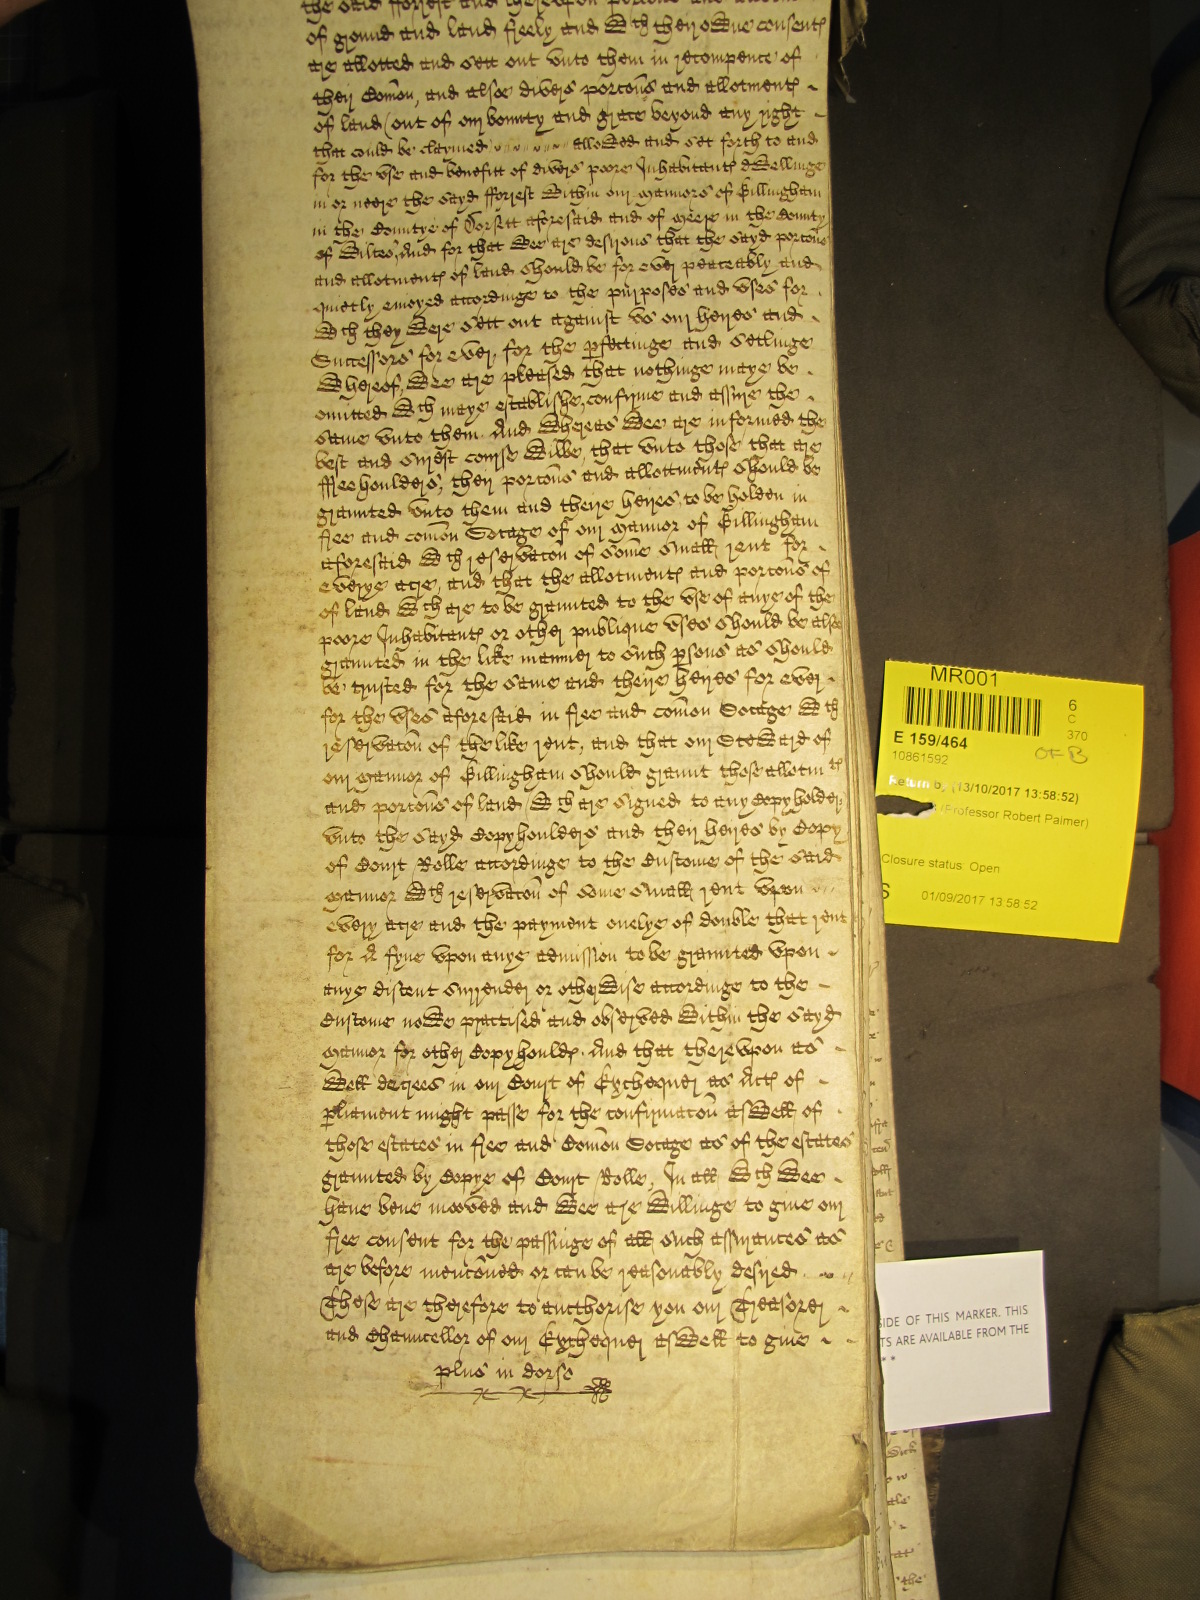 the said fforrest and thereupon portons and allotm
of ground and land freely and wth theire owne consentℯ
are allotted and sett out vnto them in recompence of
their Comōn, and alsoe divers portons and allotmentℯ
of land (out of our bounty and grace beyond any right
that could be claymed allowed and set forth to and
for the vse and benefitt of divers poore Inhabitantℯ dwellinge
in or neere the sayd fforrest within our mannors of Gillingham
in the Countye of Dorsett aforesaid and of Meere in the County
of Wiltes, And for that wee are desirous that the sayd portons
and allotmentℯ of land should be for ever peaceably and
quietly enioyed accordinge to the purposes and vses for
wch they were sett out against vs our heires and
Successors for ever, for the pfectinge and setlinge
whereof, wee are pleased that nothinge maye be
omitted wch maye establishe, confirme and assure the
same vnto them. And whereas wee are informed the
best and surest course wilbe, that vnto those that are
ffreehoulders, their portons and allottmentℯ should be
graunted vnto them and theire heires to be holden in
free and comōn Socage of our mannor of Gillingham
aforesaid wth reservaton of some small rent for
everye acre, and that the allotmentℯ and portons of
of land wch are to be graunted to the vse of anye of the
poore Inhabitantℯ or other publique vses should be alsoe
graunted in the like manner to such psons as should
be trusted for the same and theire heires for ever
for the vses aforesaid in free and comōn Socage wth
reservaton of the like rent, and that our Steward of
our mannor of Gillingham should graunt those allotmtℯ
and portons of land wch are signed to any Copyholder
vnto the sayd Copyhoulders and their heires by Copy
of Court Rolle accordinge to the Custome of the said
mannor wth reservaton of some small rent vpon
every acre and the payment onelye of double that rent
for A fyne vpon anye admission to be graunted vpon
anye discent surrender or otherwise accordinge to the
Custome nowe practised and observed within the sayd
mannor for other Copyhouldℯ. And that therevpon as
well decrees in our Court of Exchequer as Actℯ of
pliament might passe for the confirmaton aswell of
those estates in free and Comōn Socage as of the estates
graunted by Copye of Court Rolle, In all wch wee
haue bene mooved and wee are willinge to giue our
free consent for the passinge of all such assurances as
are before mentoned or can be reasonably desired
These are therefore to authorise you our Treasorer
and Chauncellor of our Exchequer aswell to giue
plus in dorso
MR001
6
C
370
E 159/464
OF B
10861592
Return by (13/10/2017 13:58:52)
(Professor Robert Palmer)
Closure status: Open
S
01/09/2017 13:58:52
SIDE OF THIS MARKER. THIS
TS ARE AVAILABLE FROM THE
**